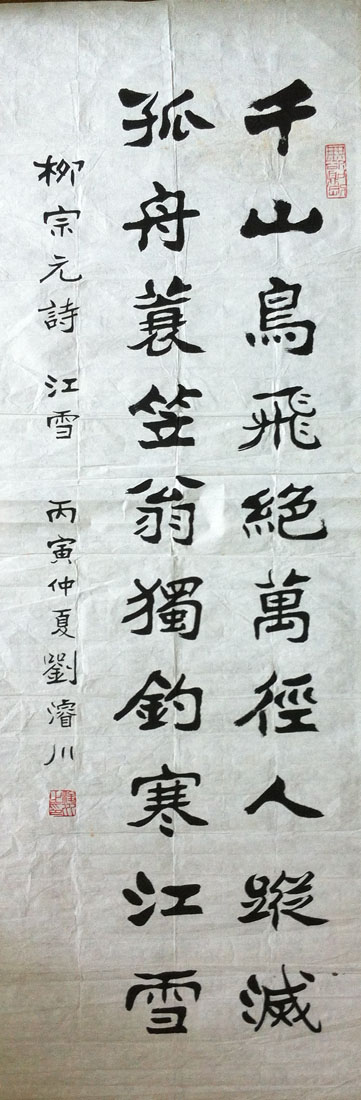 千山鳥飛絕萬徑人蹤滅
孤舟蓑笠翁獨釣寒江雪
柳宗元詩 江雪 丙寅仲夏劉濬川